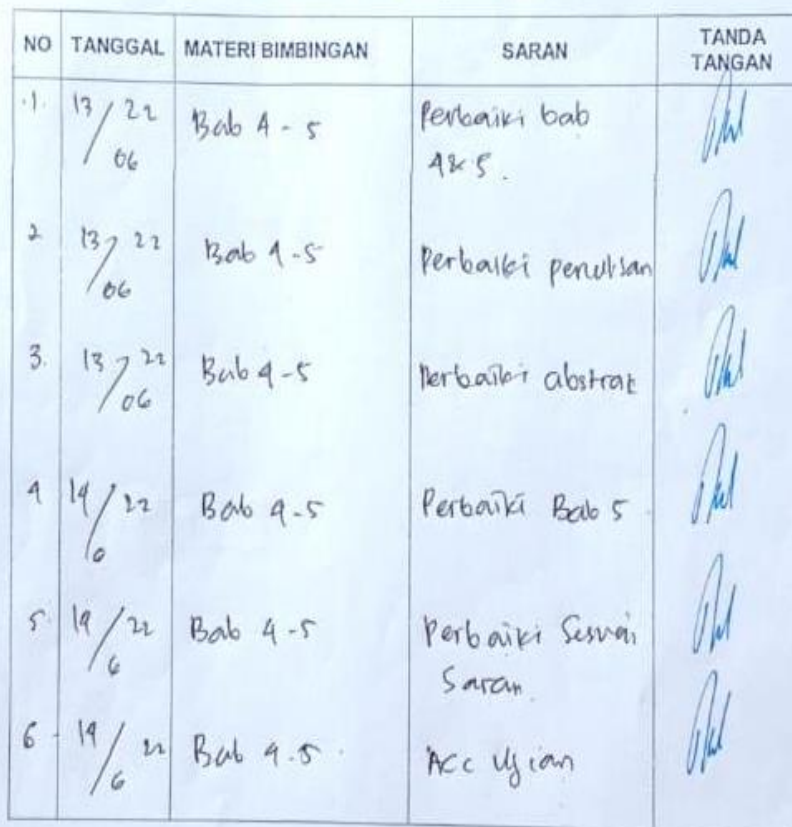 NO TANGGAL MATERI BIMBINGAN SARAN TANDA TANGAN
1. 13/06 22 Bab 4 - 5 Perbaiki bab
4 & 5.
2 13/06 22 Bab 4 - 5 Perbaiki penulisan
3. 13/06 22 Bab 4 - 5 Perbaiki abstrat
4 14/6 22 Bab 4 - 5 Perbaiki Bab 5
5. 14/6 22 Bab 4 - 5 Perbaiki Sesuai
Saran.
6 14/6 22 Bab 4 - 5. Acc Ujian